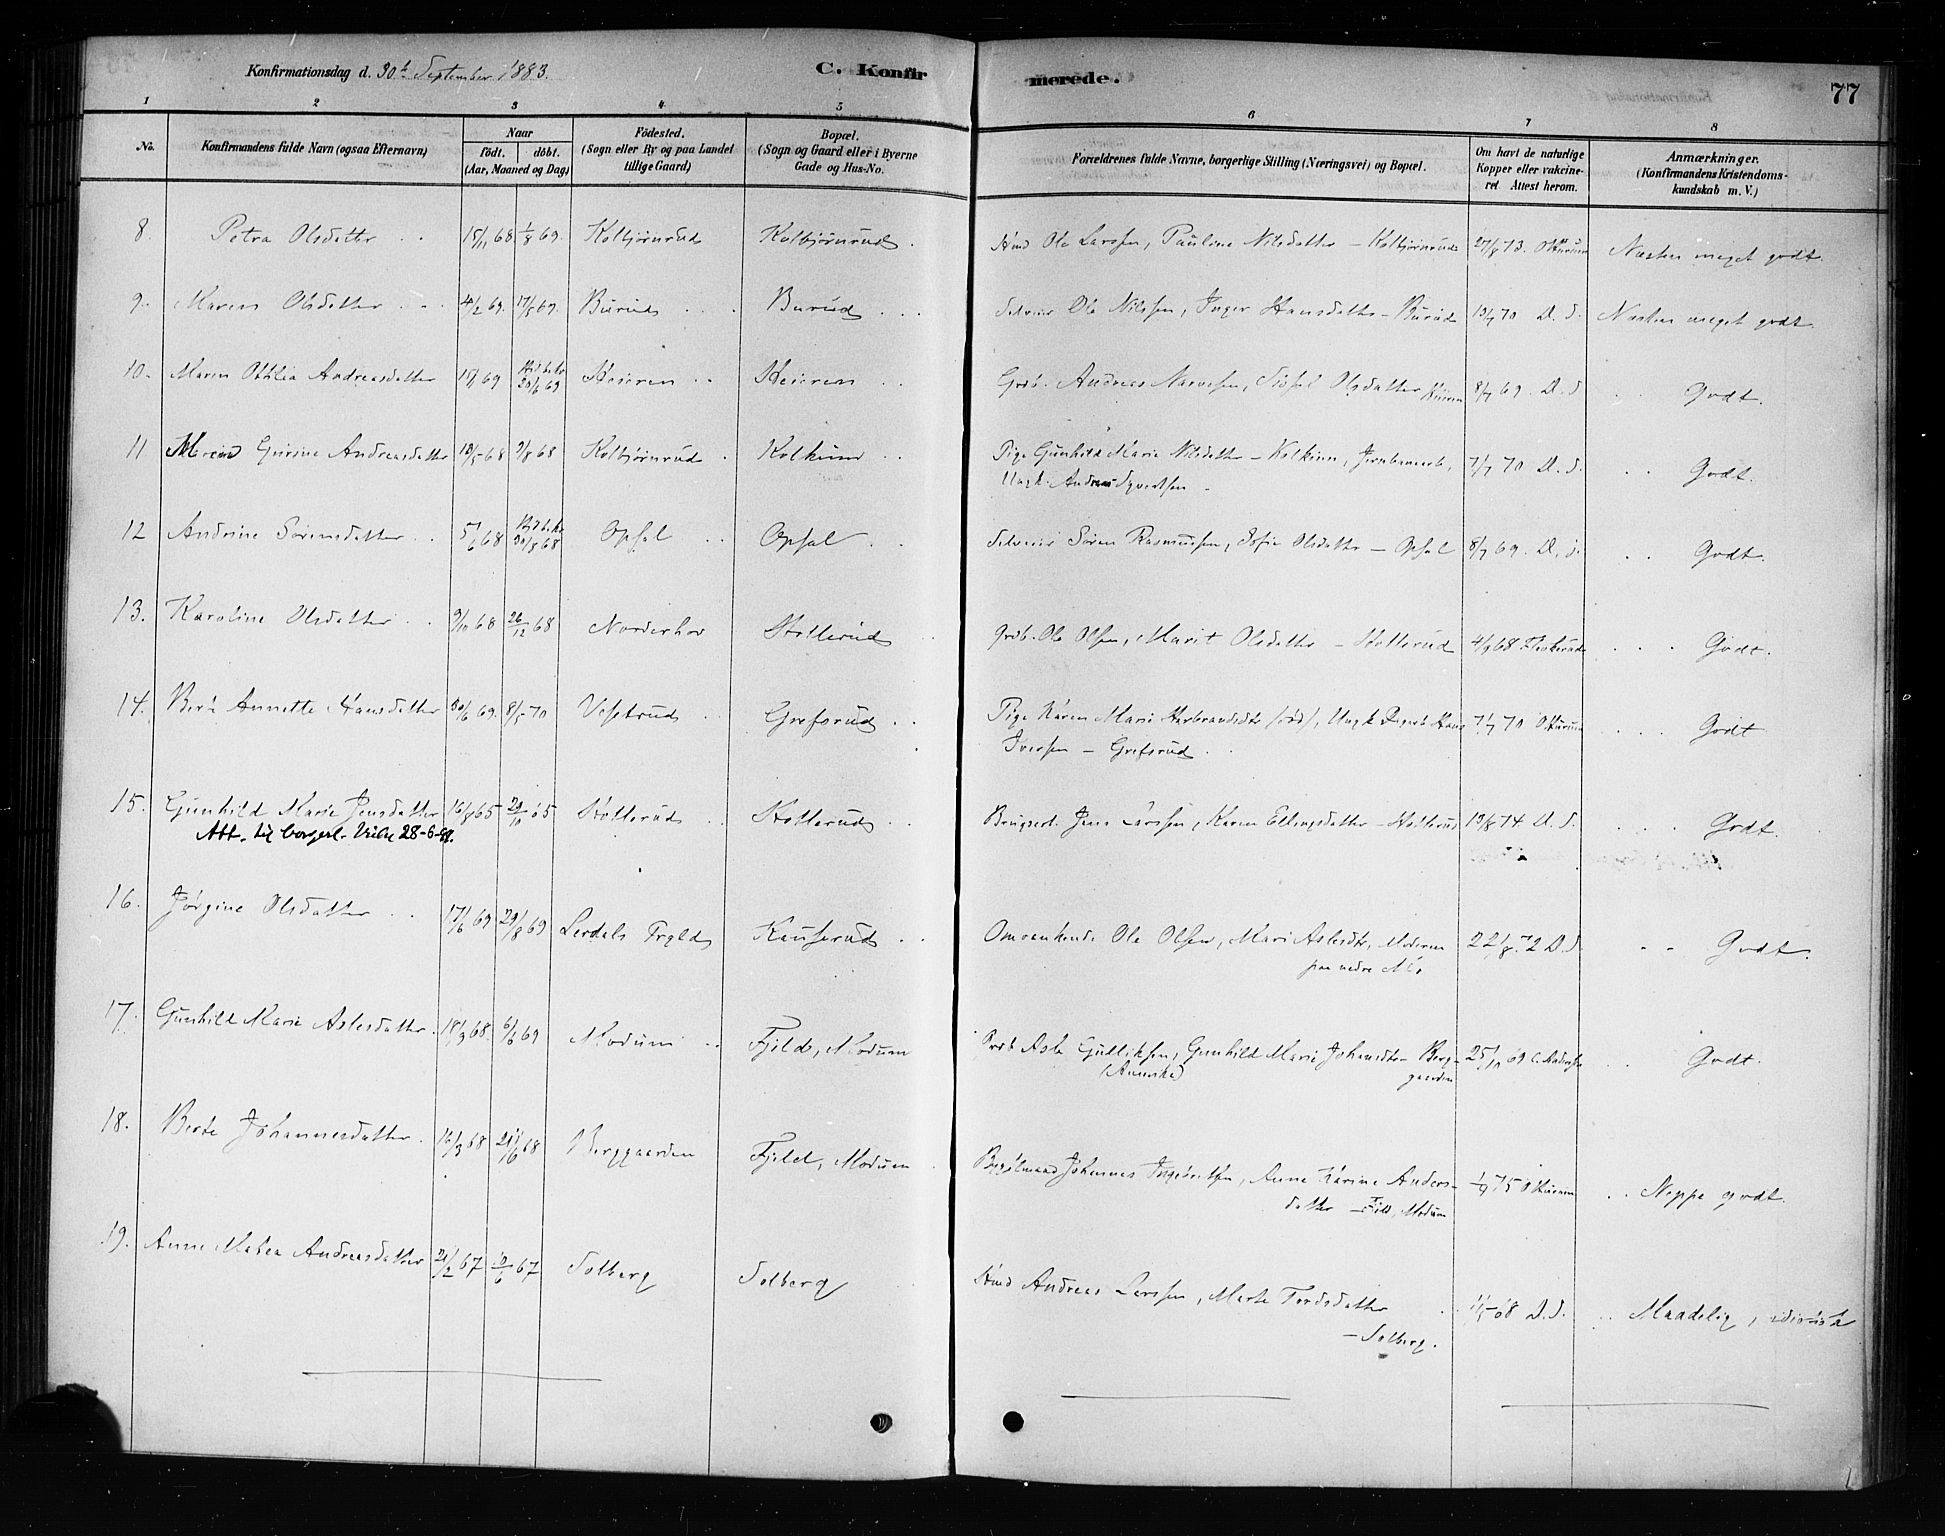 Konfirmationsdag d. 30te September 1883.
C. Konfirmerede.
77
1 2 3 4 5 6 7 8
No. Konfirmandens fulde Navn (ogsaa Efternavn) Naar født. døbt. (Aar, Maaned og Dag) Fødested. (Sogn eller By og paa Landet tillige Gaard) Bopæl. (Sogn og Gaard eller i Byerne Gade og Hus-No. Forældrenes fulde Navne, borgerlige Stilling (Næringsvei) og Bopæl. Om havt de naturlige Kopper eller vakcineret Attest herom. Anmærkninger. (Konfirmandens Kristendomskundskab m. V.)
8. Petra Olsdatter 15/11 68 1/8 69. Kolbjørnrud Kolbjørnrud. Hmd Ole Larssen, Pauline Nilsdatter - Kolbjørnrud 27/8 73. Næsten meget godt.
9. Maren Olsdatter 4/2 69. 17/5 69. Burud Burud Selveier Ole Nilssen, Inger Hansdatter - Burud 13/7 70 D. S. Næsten meget godt.
10. Maren Othlia Andreasdatter 69 30/6 69 Heieren Heieren Grdb. Andreas Narvesen, Sidsel Olsdatter Heieren 8/7 69. D. S. Godt.
11 Gurine Andreasdatter 18/5 68 9/8 68 Kolbjørnrud Kolkinn Pige Gunhild Marie Nilsdatter - Kolkinn, Jernbanearb.
Ungk. Andreas Syvertsen - 7/7 70 D. S. Godt.
12 Andrine Sørensdatter 5/6 68 30/8 68 Opsal Opsal Selveier Søren Rasmussen, Sofie Olsdatter - Opsal 8/7 69. D. S. Godt.
13. Karoline Olsdatter 9/10 68 26/12 68 Norderhov Stotterud Grdb. Ole Olsen, Marit Olsdatter - Stotterud 4/9 68 Godt.
14. Annette Hansdatter 30/6 69. 8/5 70 Vestrud Grefsrud Pige Karen Marie Ungk Hans
Iversen - Grefsrud 7/7 70 Godt
15. Gunhild Marie Jensdatter 16/8 65 29/10 65 Stotterud Stotterud Brugerb. Jens Larssen, Karen Ellingsdatter - Stotterud 19/8 74. D. S. Godt.
Att. til borgerl. 28-6-
16. Jørgine Olsdatter 17/6 69 29/8 69 Lerdals Kauserud Omvankende Ole Olsen, Mari Aslesdtr, Moderen
paa nedre 22/8 72 D. S. Godt.
17. Gunhild Marie Aslesdatter. 18/3 68. 6/6 69 Modum Fjeld, Modum Asle Gulliksen, Gunhild Marie Johansdtr - Berg-
(Amerika) gaarden 25/10 69 Godt.
18. Berte Johannesdatter. 16/3 68 21/6 68 Berggaarden Fjeld, Modum Johannes Ingebretsen, Anne Karine Anders-
datter - Modum 1/9 75 Neppe godt.
19. Anne Mathea Andreasdatter 21/2 67 10/6 67 Solberg Solberg Hmd Andreas Larssen, Marte Tordsdatter
- Solberg. 68 D. S. Maadelig, idiotisk